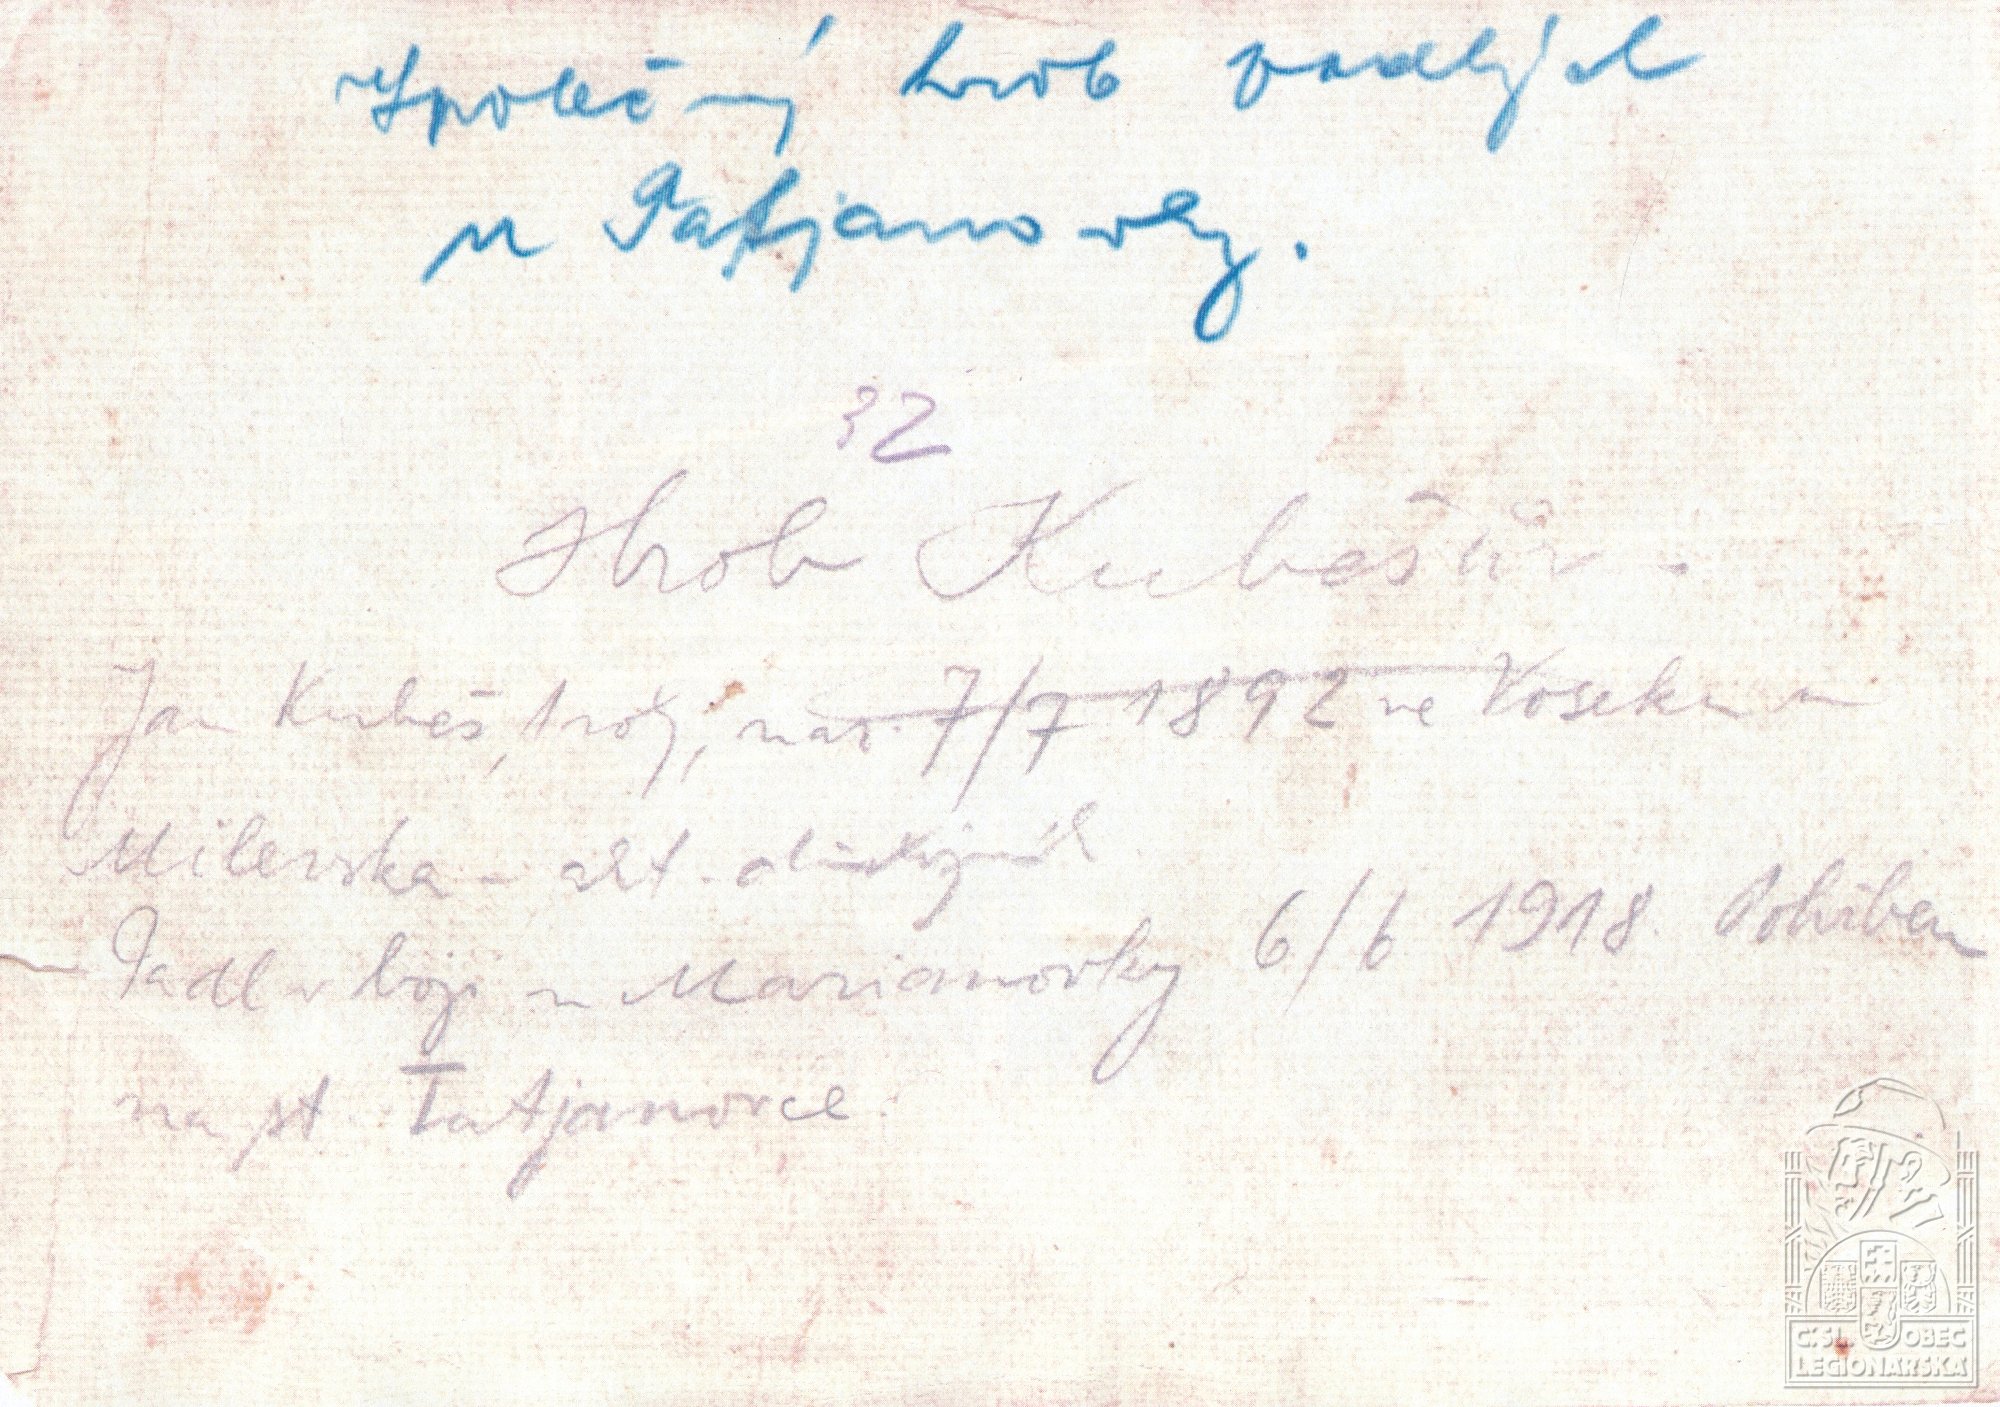 Společný hrob padlých
u Tatjanovky.
32
Hrob Kubešův.
Jan Kubeš, 1 roty, nar. 7/7 1892 ve Voseku u
Milevska - akt.
Padl v boji u Marianovky 6/6 1918. Pohřben
na st. Tatjanovce.
Č.SL. OBEC
LEGIONÁŘSKÁ